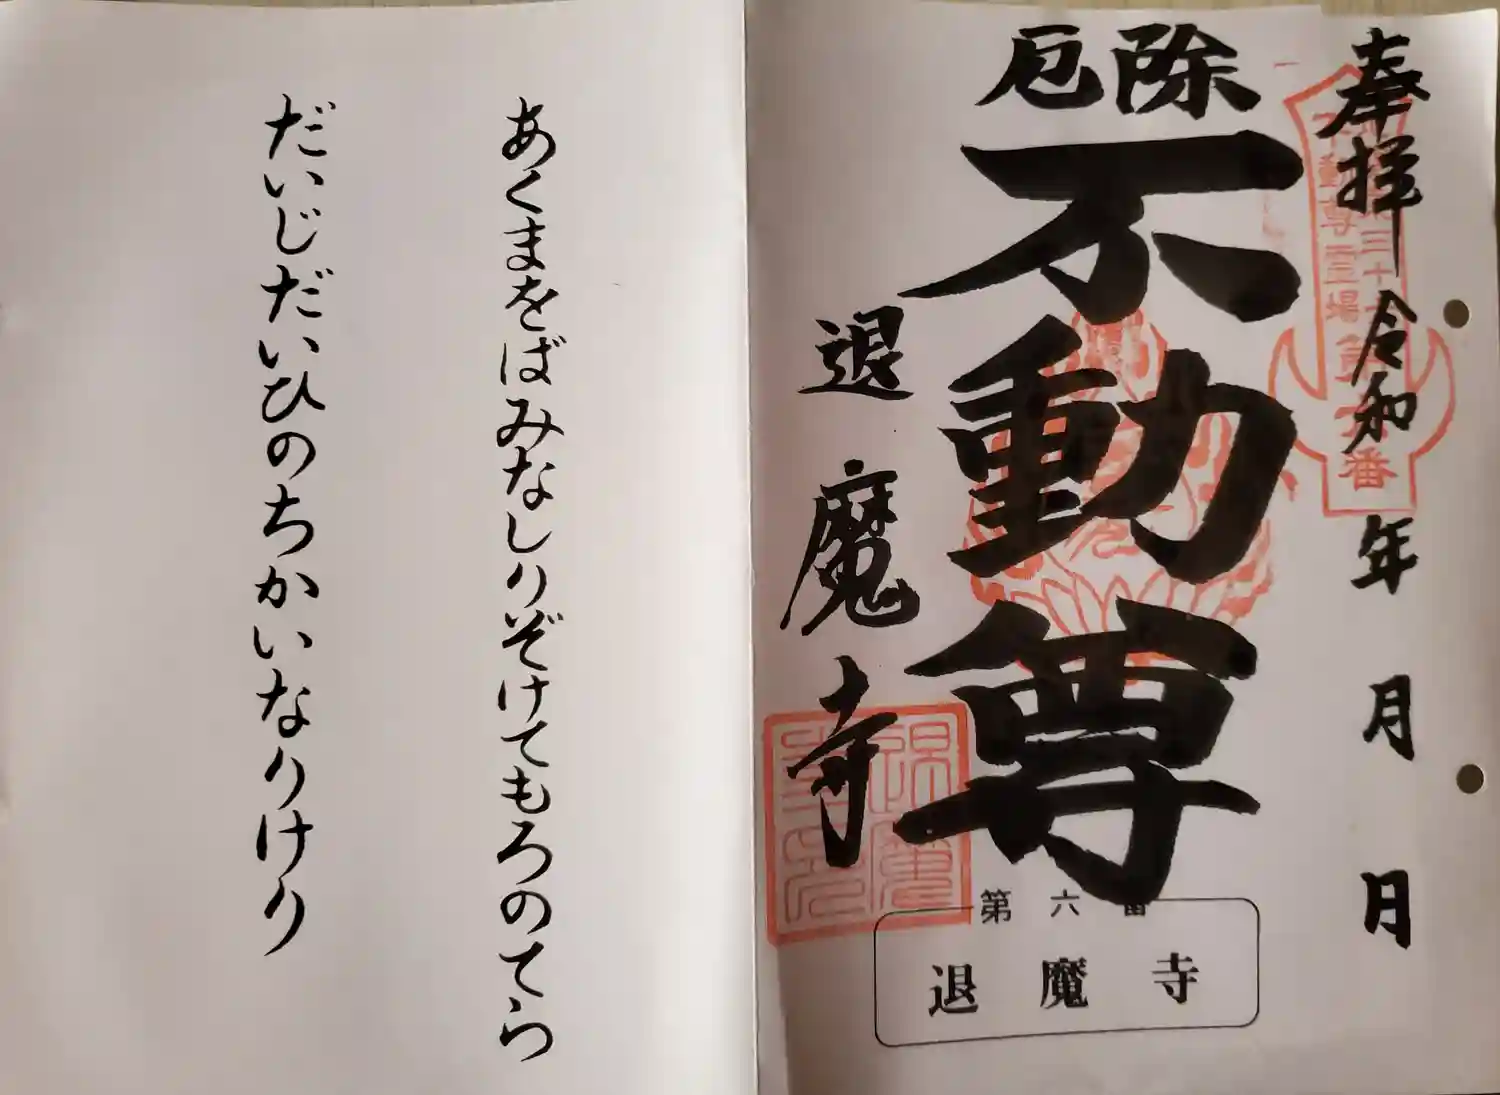 奉拝 令和 年 月 日
厄除
不動尊
退魔寺
不動尊霊場
番
第六番
退魔寺
あくまをばみなしりぞけてもろのてら
だいじだいひのちかいなりけり